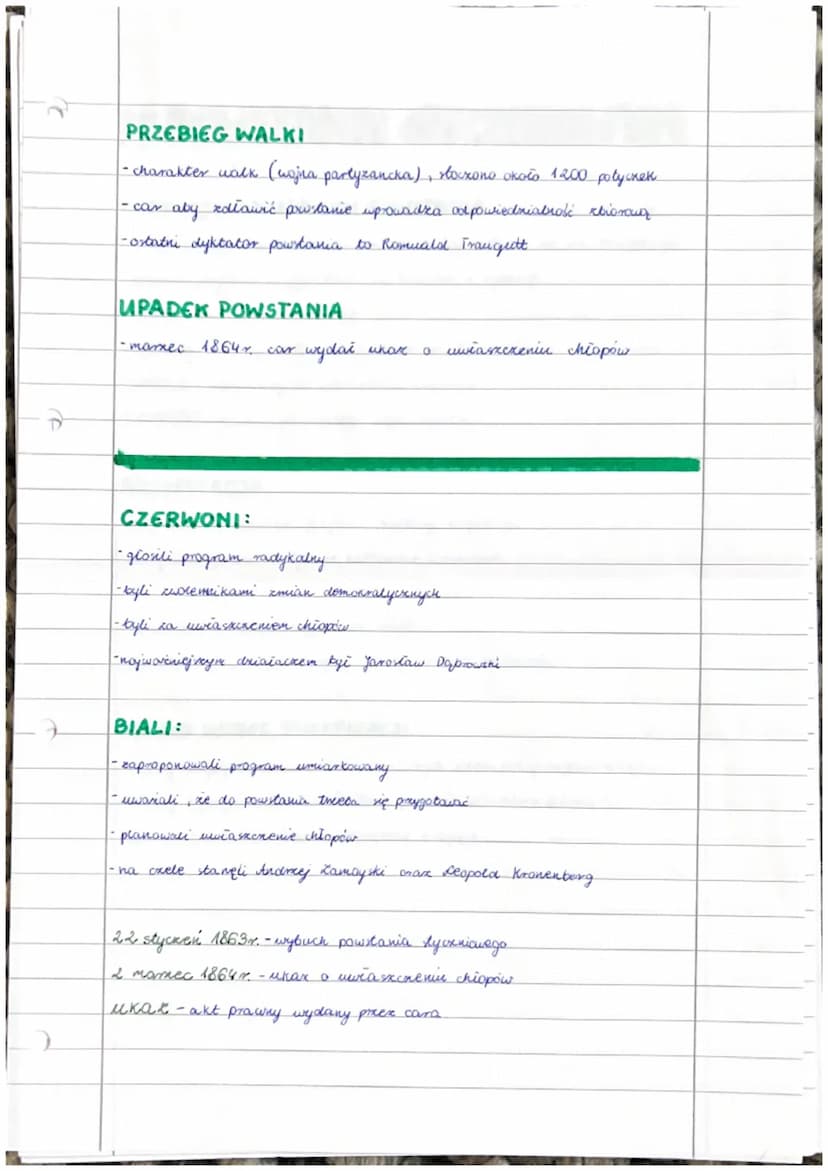 PRZEBIEG WALKI
- charakter walk (wojna partyzancka), stoczono około 1200 potyczek
- car aby zdławić powstanie wprowadza odpowiedzialność zbiorową
- ostatni dyktator powstania to Romuald Traugutt
UPADEK POWSTANIA
- marzec 1864r. car wydał ukaz o uwłaszczeniu chłopów
CZERWONI:
- głosili program radykalny
- byli zwolennikami zmian demokratycznych
- byli za uwłaszczeniem chłopów
- najważniejszym działaczem był Jarosław Dąbrowski
BIALI:
- zaproponowali program umiarkowany
- uważali, że do powstania trzeba się przygotować
- planowali uwłaszczenie chłopów
- na czele stanęli Andrzej Zamoyski oraz Leopold Kronenberg
22 styczeń 1863r. - wybuch powstania styczniowego
2 marzec 1864r. - ukaz o uwłaszczeniu chłopów
ukaz - akt prawny wydany przez cara